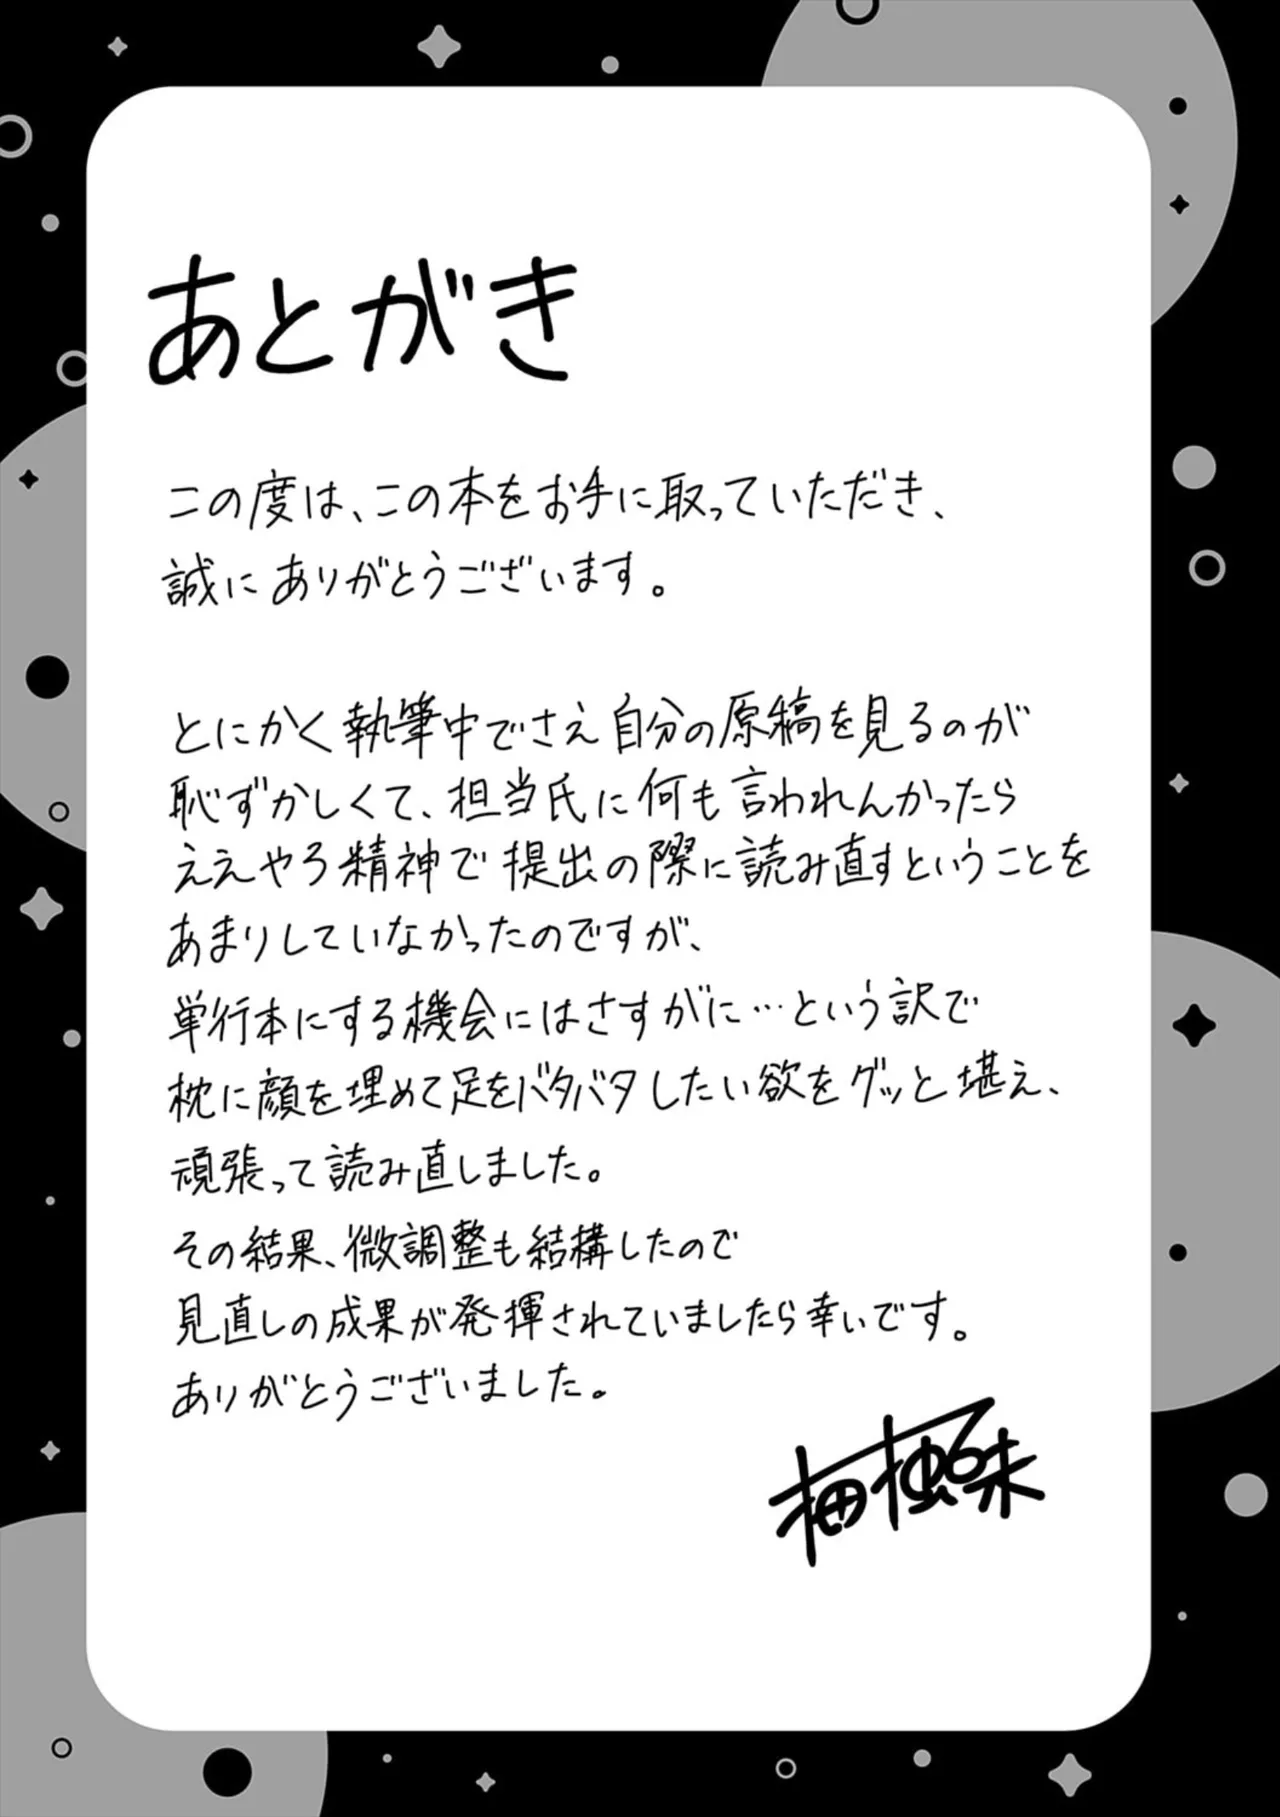 あとがき
この度は、この本をお手に取っていただき、
誠にありがとうございます。
とにかく執筆中でさえ自分の原稿を見るのが
恥ずかしくて、担当氏に何も言われんかったら
ええやろ精神で提出の際に読み直すということを
あまりしていなかったのですが、
単行本にする機会にはさすがに…という訳で
枕に顔を埋めて足をバタバタしたい欲をグッと堪え、
頑張って読み直しました。
その結果、微調整も結構したので
見直しの成果が発揮されていましたら幸いです。
ありがとうございました。